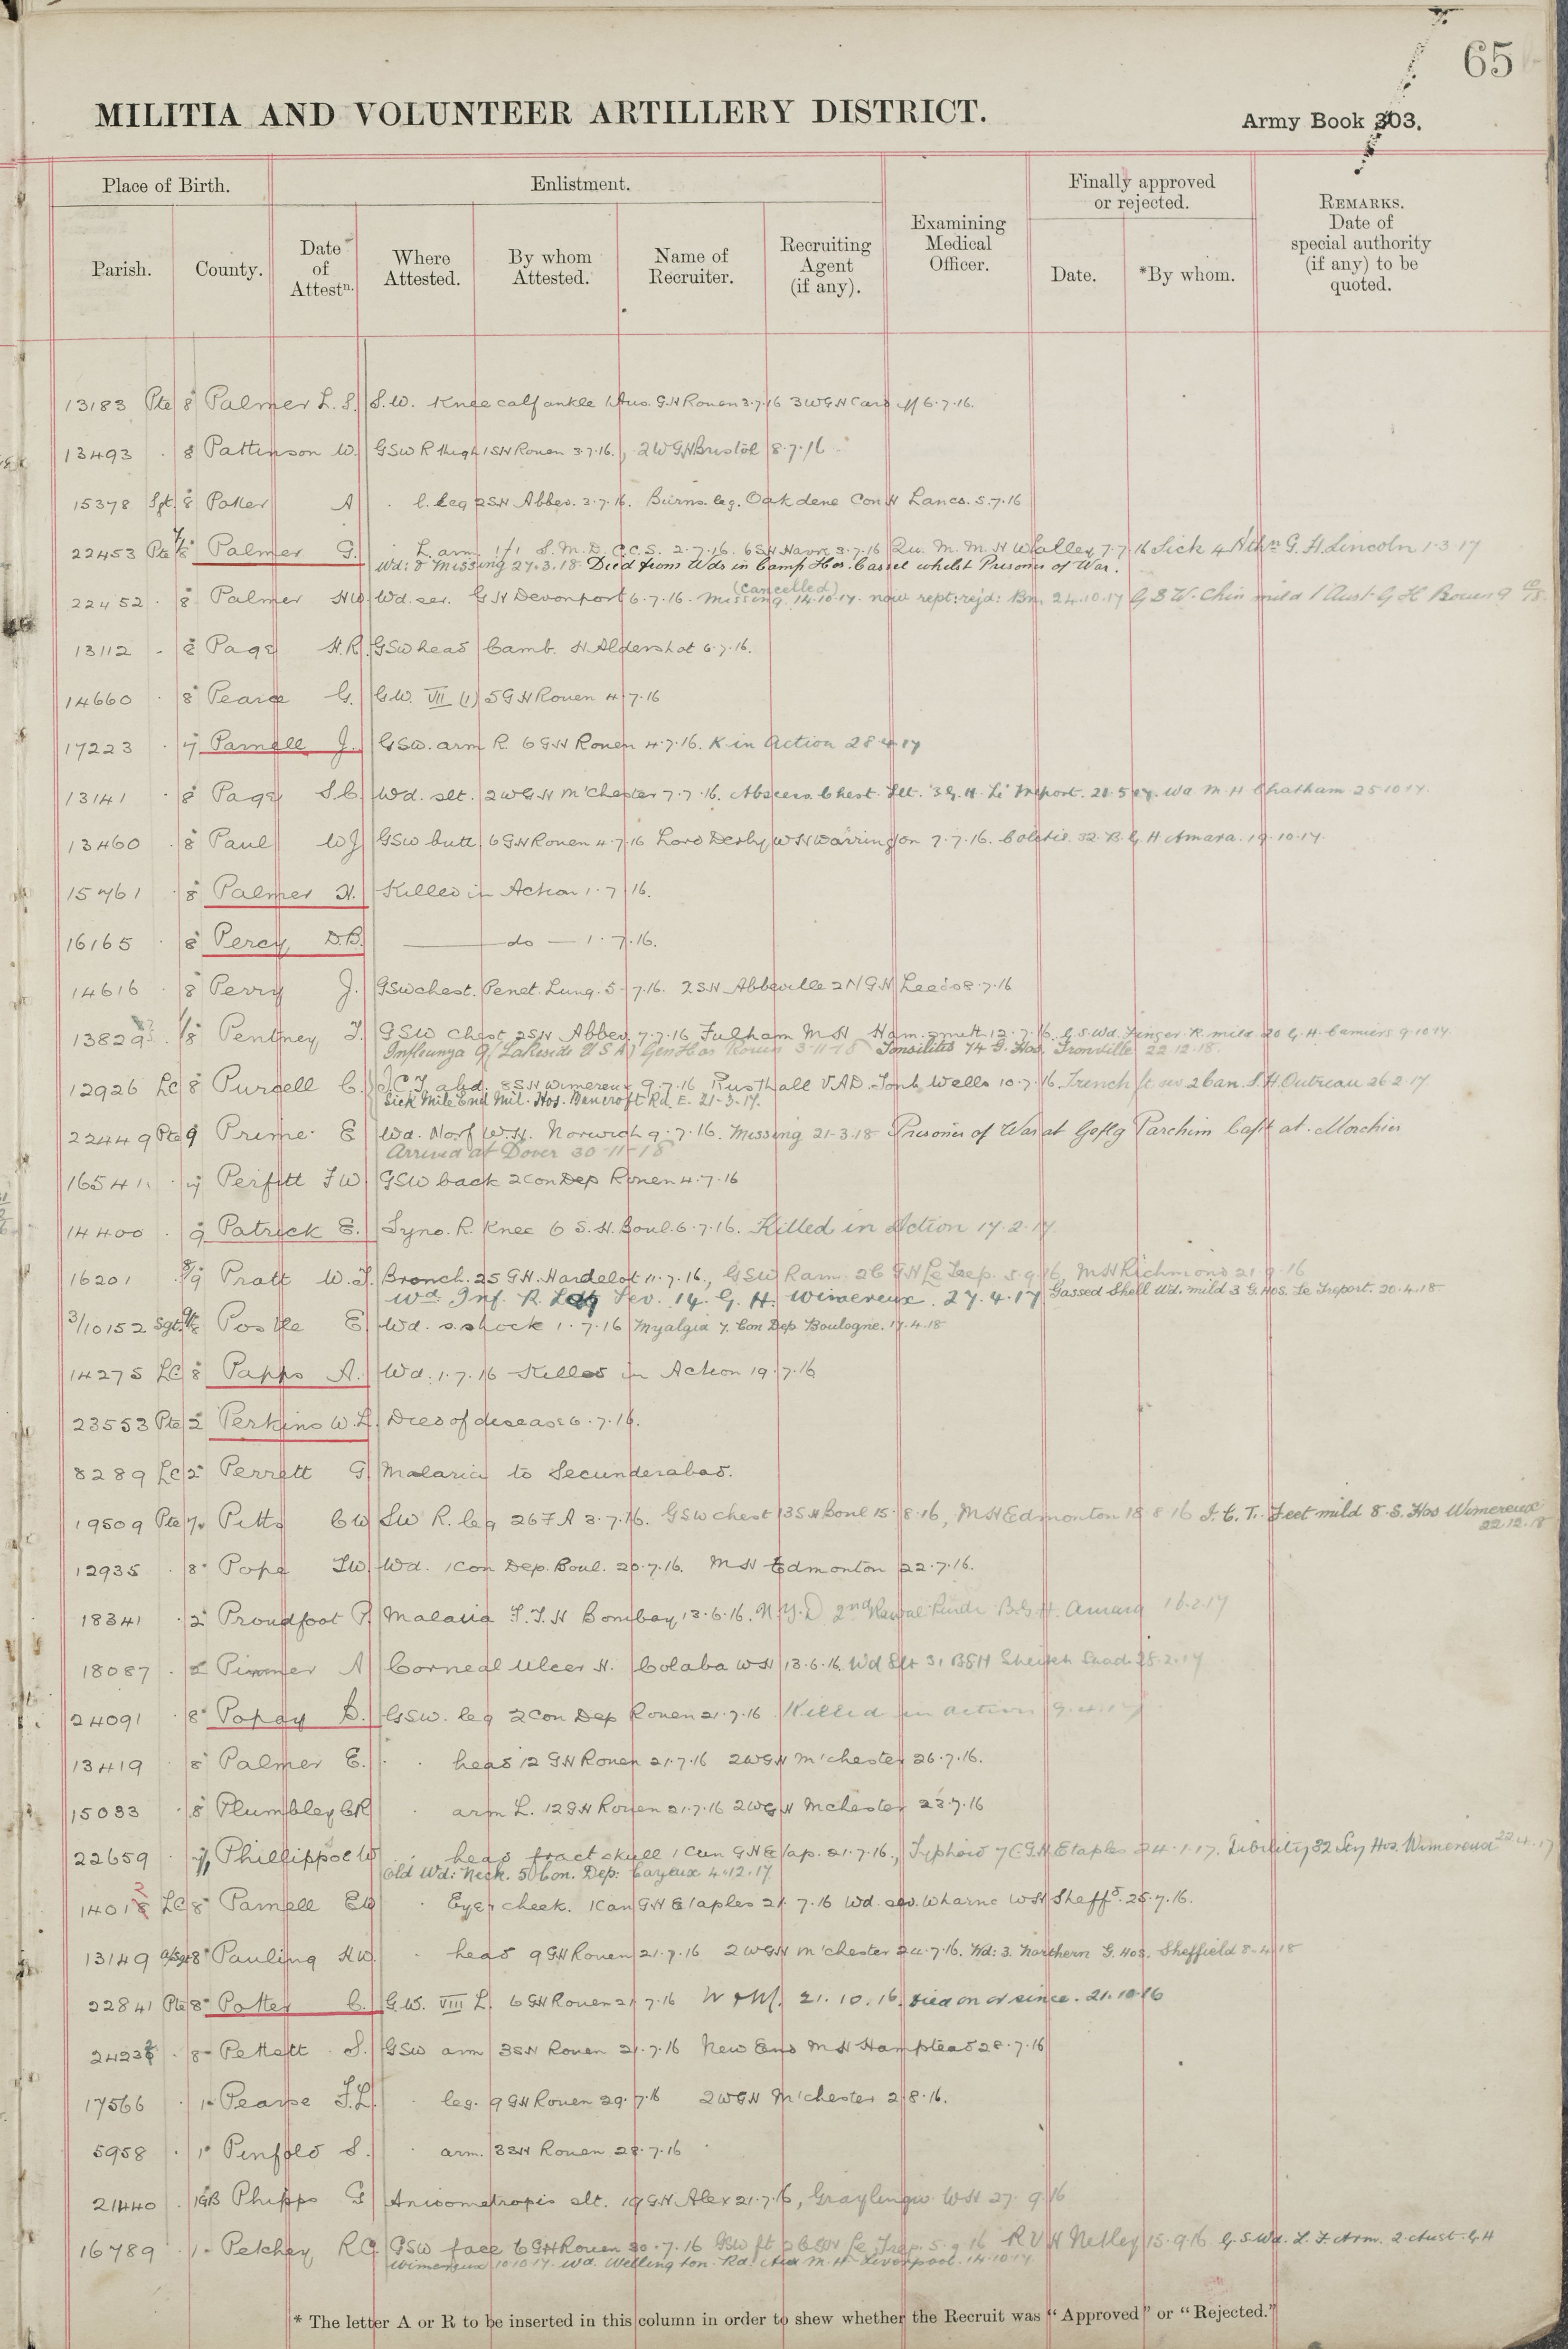 65
MILITIA AND VOLUNTEER ARTILLERY DISTRICT.
Army Book 303.
Place of Birth.
Enlistment.
Finally approved or rejected.
Parish.
County.
Date of Attestn.
Where Attested.
By whom Attested.
Name of Recruiter.
Recruiting Agent (if any).
Examining Medical Officer.
Date.
*By whom.
REMARKS. Date of special authority (if any) to be quoted.
13183 Pte 8 Palmer L. S. S.W. Knee calf ankle 1 Aus. G.H Rouen 3.7.16 3WGH Cardiff 6.7.16.
13493 . 8 Pattinson W. GSW R thigh 1SH Rouen 3.7.16., 2WGH Bristol 8.7.16
15378 Sgt 8 Potter A . l. leg 2SH Abbev. 3.7.16. Burns leg. Oakdene Con H Lancs. 5.7.16
22453 Pte 7/8 Palmer G. . L. arm 1/1 S.M.D. C.C.S. 2.7.16. 6SH Havre 3.7.16 Qu. M. M. H Whalley 7.7.16 Sick 4 Nthn G. H Lincoln 1.3.17
Wd: & Missing 27.3.18 Died from Wds in Camp Hos. Cassel whilst Prisoner of War.
22452 . 8 Palmer HW Wd. sev. GH Devonport 6.7.16. Missing 14.10.17. (Cancelled) now rept: rejd: Bn. 24.10.17 G S W. Chin mild 1 Aust G H Rouen 9
13112 . 8 Page H.R. GSW head Camb. H Aldershot 6.7.16.
14660 . 8 Pearce G. G.W. VII (1) 5GH Rouen 4.7.16
17223 . 7 Parnell J. GSW. arm R. 6GH Rouen 4.7.16. K in Action 28.4.17
13141 . 8 Page S.C. Wd. slt. 2WGH M'Chester 7.7.16. Abscess Chest. Slt. 3 G.H. Le Treport. 21.5.17. Wd M.H Chatham 25.10.17.
13460 . 8 Paul WJ GSW butt 6GH Rouen 4.7.16 Lord Derby WH Warrington 7.7.16. Colitis. 32. B. G. H Amara. 19.10.17.
15761 . 8 Palmer H. Killed in Action 1.7.16.
16165 . 8 Percy D.B. — do — 1.7.16.
14616 . 8 Perry J. GSW chest. Penet. Lung. 5.7.16. 2SH Abbeville 2NGH Leeds 8.7.16
13829 . 1/8 Pentney J. GSW Chest 2SH Abbev 7.7.16 Fulham MH Ham.smith 12.7.16. G.S.Wd. Finger R. mild 20 G.H. Camiers 9.10.17.
Influenza 9 (Lakeside U S A) Gen Hos Rouen 3-11-18 Tonsilites 74 G. Hos. Tronville 22.12.18.
12926 LC 8 Purcell C. ICT abd. 8SH Wimereux 9.7.16 Rusthall VAD. Tonb. Wells 10.7.16. Trench ft sev 2 Can. S.H. Outreau 26.2.17.
Sick Mile End Mil. Hos. Bancroft Rd. E. 21-3-17.
22449 Pte 9 Prime E Wd. Norf W.H. Norwich 9.7.16. Missing 21-3-18 Prisoner of War at Parchim Capt at Morchies
Arrived at Dover 30-11-18
16541 . 7 Perfitt FW GSW back 2 Con Dep Rouen 4.7.16
14400 . 9 Patrick E. Syno. R. Knee 6 S.H. Boul. 6.7.16. Killed in Action 17.2.17.
16201 8/9 Pratt W.J. Bronch. 25 G.H. Hardelot 11.7.16., GSW R arm. 26 GH Le Trep. 5.9.16, MH Richmond 21.9.16
Wd Inf. R. Leg Sev. 14. G. H. Wimereux. 27.4.17 Gassed Shell Wd. mild 3 G. Hos. Le Treport. 20.4.18
3/10152 Sgt Postle E Wd. s. shock 1.7.16 Myalgia 7. Con Dep Boulogne. 17.4.18
14275 LC 8 Papps A. Wd. 1.7.16 Killed in Action 19.7.16
23553 Pte 2 Perkins W.L. Died of disease 6.7.16.
8289 LC 2 Perrett G Malaria to Secunderabad.
19509 Pte 7 Pitts CW SW R. leg 26 FA 3.7.16. GSW chest 13SH Boul 15.8.16, MH Edmonton 18.8.16 I. C. T. Feet mild 8. S. Hos Wimereux 22.12.18
12935 . 8 Pope JW Wd. 1 Con Dep. Boul. 20.7.16. MH Edmonton 22.7.16.
18341 . 2 Proudfoot P. Malaria F.T.H Bombay 13.6.16. N.Y.D 2nd Rawal Pindi B.G.H. Amara 16.2.17
18087 . 2 Pimmer A Corneal Ulcer H. Colaba WH 13.6.16. Wd Slt 31 BSH Sheikh Saad. 28.2.17
24091 . 8 Popay D. GSW. leg 2 Con Dep Rouen 21.7.16 Killed in action 9.4.17
13419 . 8 Palmer E. . . head 12 GH Rouen 21.7.16 2WGH M'chester 26.7.16.
15033 . 8 Plumbley CR . arm L. 12GH Rouen 21.7.16 2WGH Mchester 23.7.16
22659 . 7 Phillippoe W . head fract skull 1 Can GH Etap. 21.7.16., Typhoid 7CGH Etaples 24.1.17. Debility 32 Sty Hos. Wimereux 22.4.17
Old Wd: Neck. 5 Con. Dep: Cayeux 4.12.17
14012 LC 8 Parnell EW . Eye & cheek. 1 Can GH Etaples 21.7.16 Wd. sev. Wharnc WH Sheffd. 25.7.16.
13149 a/Sgt 8 Pauling HW. . head 9GH Rouen 21.7.16 2WGH M'chester 24.7.16. Wd: 3. Northern G. Hos. Sheffield 8.4.18
22841 Pte 8 Potter C. G.W. VIII L. 6GH Rouen 21.7.16 W & M. 21.10.16. Died on or since. 21.10.16
24238 . 8 Pettett S. GSW arm 3SH Rouen 21.7.16 New End MH Hampstead 28.7.16
17566 . 1 Pearse F.L. . leg. 9GH Rouen 29.7.16 2WGH M'chester 2.8.16.
5958 . 1 Penfold S. . arm. 3SH Rouen 28.7.16
21440 . 1GB Phipps G Anisometropia slt. 19GH Alex 21.7.16, Graylingw. WH 27.9.16
16789 . 1 Petchey R.G. GSW face 6GH Rouen 30.7.16 GSW ft 26GH Le Trep. 5.9.16 R V H Netley 15.9.16 G.S.Wd. L. F. Arm. 2 Aust. G.H
Wimereux 10.10.17. Wd. Wellington. Rd. Aux M.H Liverpool. 14.10.17.
* The letter A or R to be inserted in this column in order to shew whether the Recruit was "Approved" or "Rejected."